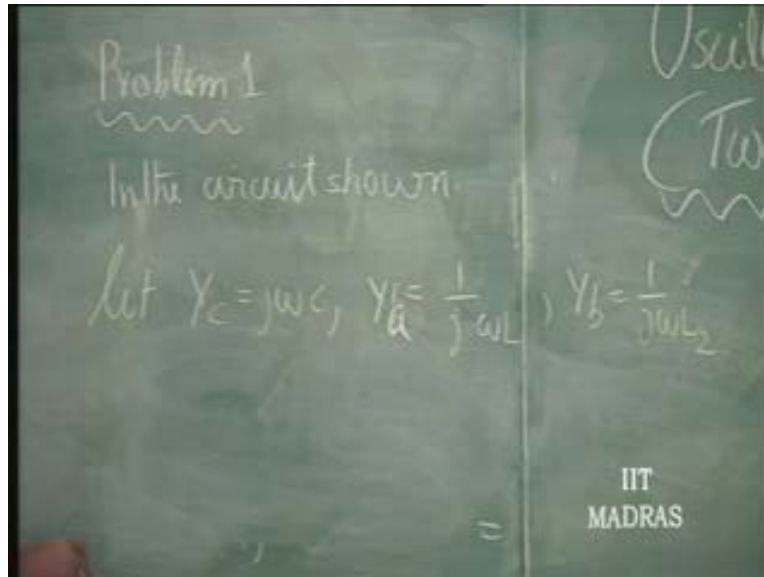 Problem 1
In the circuit shown.
let Y_c = jωc, Y_a = 1/jωL, Y_b = 1/jωL_2
=
Oscil
(Tw
IIT
MADRAS